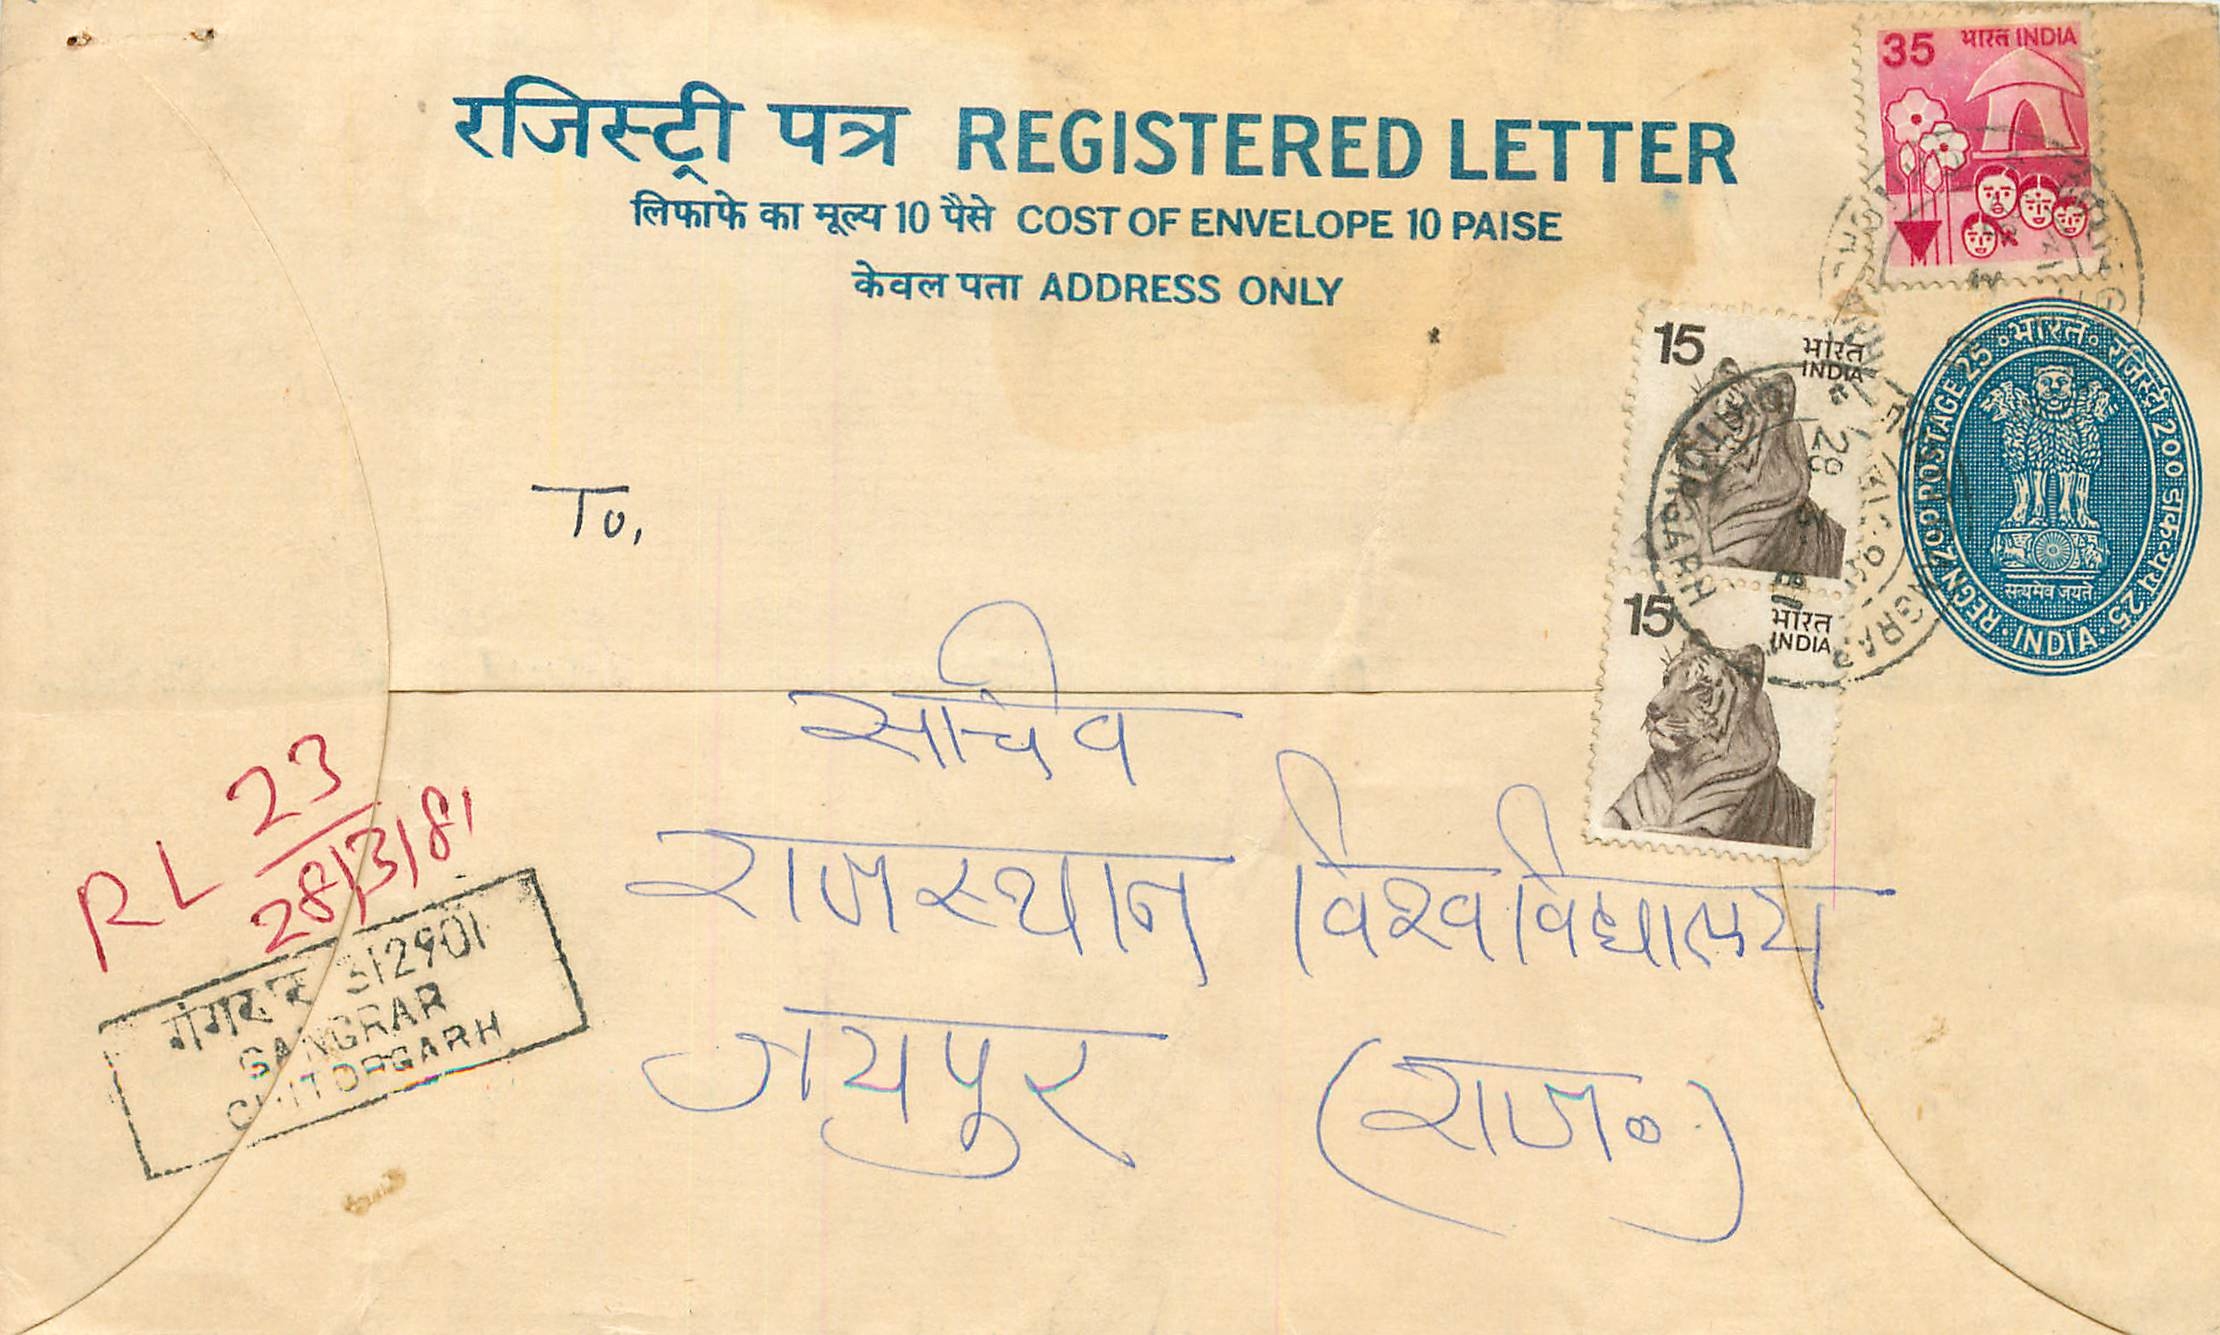 35 भारत INDIA
रजिस्ट्री पत्र REGISTERED LETTER
लिफाफे का मूल्य 10 पैसे COST OF ENVELOPE 10 PAISE
केवल पता ADDRESS ONLY
15 भारत
INDIA
REGN 200 POSTAGE 25 भारत रजिस्ट्री 200 डाकव्यय 25
सत्यमेव जयते
INDIA
28
To,
15 भारत
INDIA
सचिव
राजस्थान विश्वविद्यालय
जयपुर (राज०)
RL 23
28/3/81
गंगरार 312901
GANGRAR
CHITORGARH